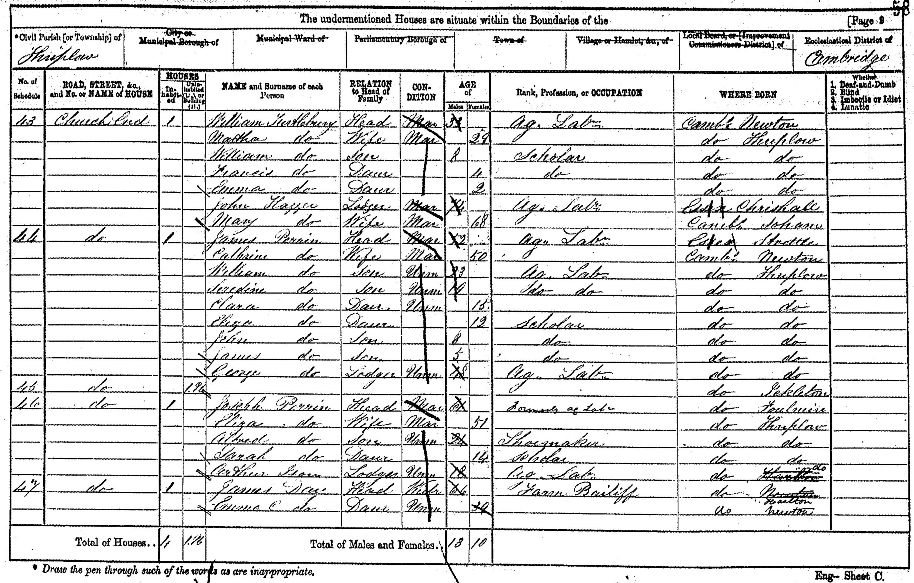 58
The undermentioned Houses are situate within the Boundaries of the [Page 9
*Civil Parish [or Township] of City or Municipal Borough of Municipal Ward of Parliamentary Borough of Town of Village or Hamlet, &c., of Local Board, or [Improvement Commissioners District] of Ecclesiastical District of
Thriplow Cambridge
No. of Schedule ROAD, STREET, &c., and No. or NAME of HOUSE HOUSES In-habited Unin-habited (U.), or Building (B.) NAME and Surname of each Person RELATION to Head of Family CON-DITION AGE of Males Females Rank, Profession, or OCCUPATION WHERE BORN Whether 1. Deaf-and-Dumb 2. Blind 3. Imbecile or Idiot 4. Lunatic
43 Church End 1 William Head Mar Ag. Lab Cambs Newton
Martha do Wife Mar 29 do Thriplow
William do Son 8 Scholar do do
Francis do Daur 4 do do do
Emma do Daur 2 do do
John Lodger Mar Ag. Lab Essex Chrishall
Mary do Wife Mar 68 Cambs
44 do 1 James Perrin Head Mar Ag. Lab Essex
Cathrine do Wife Mar 50 Cambs Newton
William do Son Unm 23 Ag. Lab do Thriplow
do Son Unm 19 do do do
Clara do Daur Unm 15 do do
Eliza do Daur 12 Scholar do do
John do Son 8 do do do
James do Son 5 do do do
George do Lodger Unm 18 Ag. Lab do do
45 do 1 do
46 do 1 Joseph Perrin Head Mar do Foulmire
Eliza do Wife Mar 51 do Thriplow
Alfred do Son Unm Shoemaker do do
Sarah do Daur 14 Scholar do do
Arthur Lodger Unm 18 Ag Lab do do
47 do 1 James Day Head Widr 66 Farm Bailiff do
Emma C do Daur Unm 19 do Newton
Total of Houses.. 4 Total of Males and Females.. 13 10
* Draw the pen through such of the words as are inappropriate.
Eng- Sheet C.